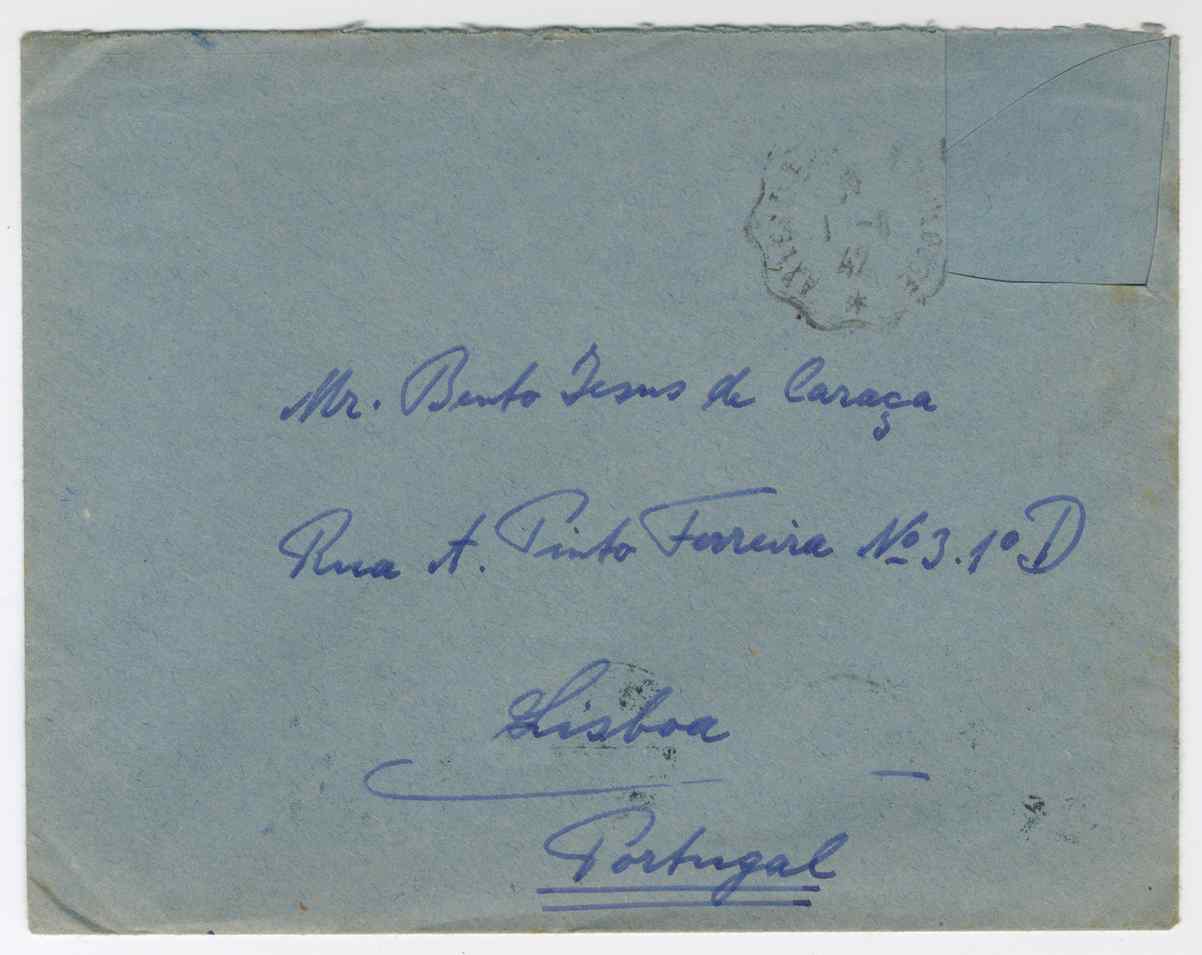 1 -
47
*
Mr. Bento Jesus de Caraça
Rua A. Pinto Ferreira Nº 3. 1º D
Lisboa
Portugal